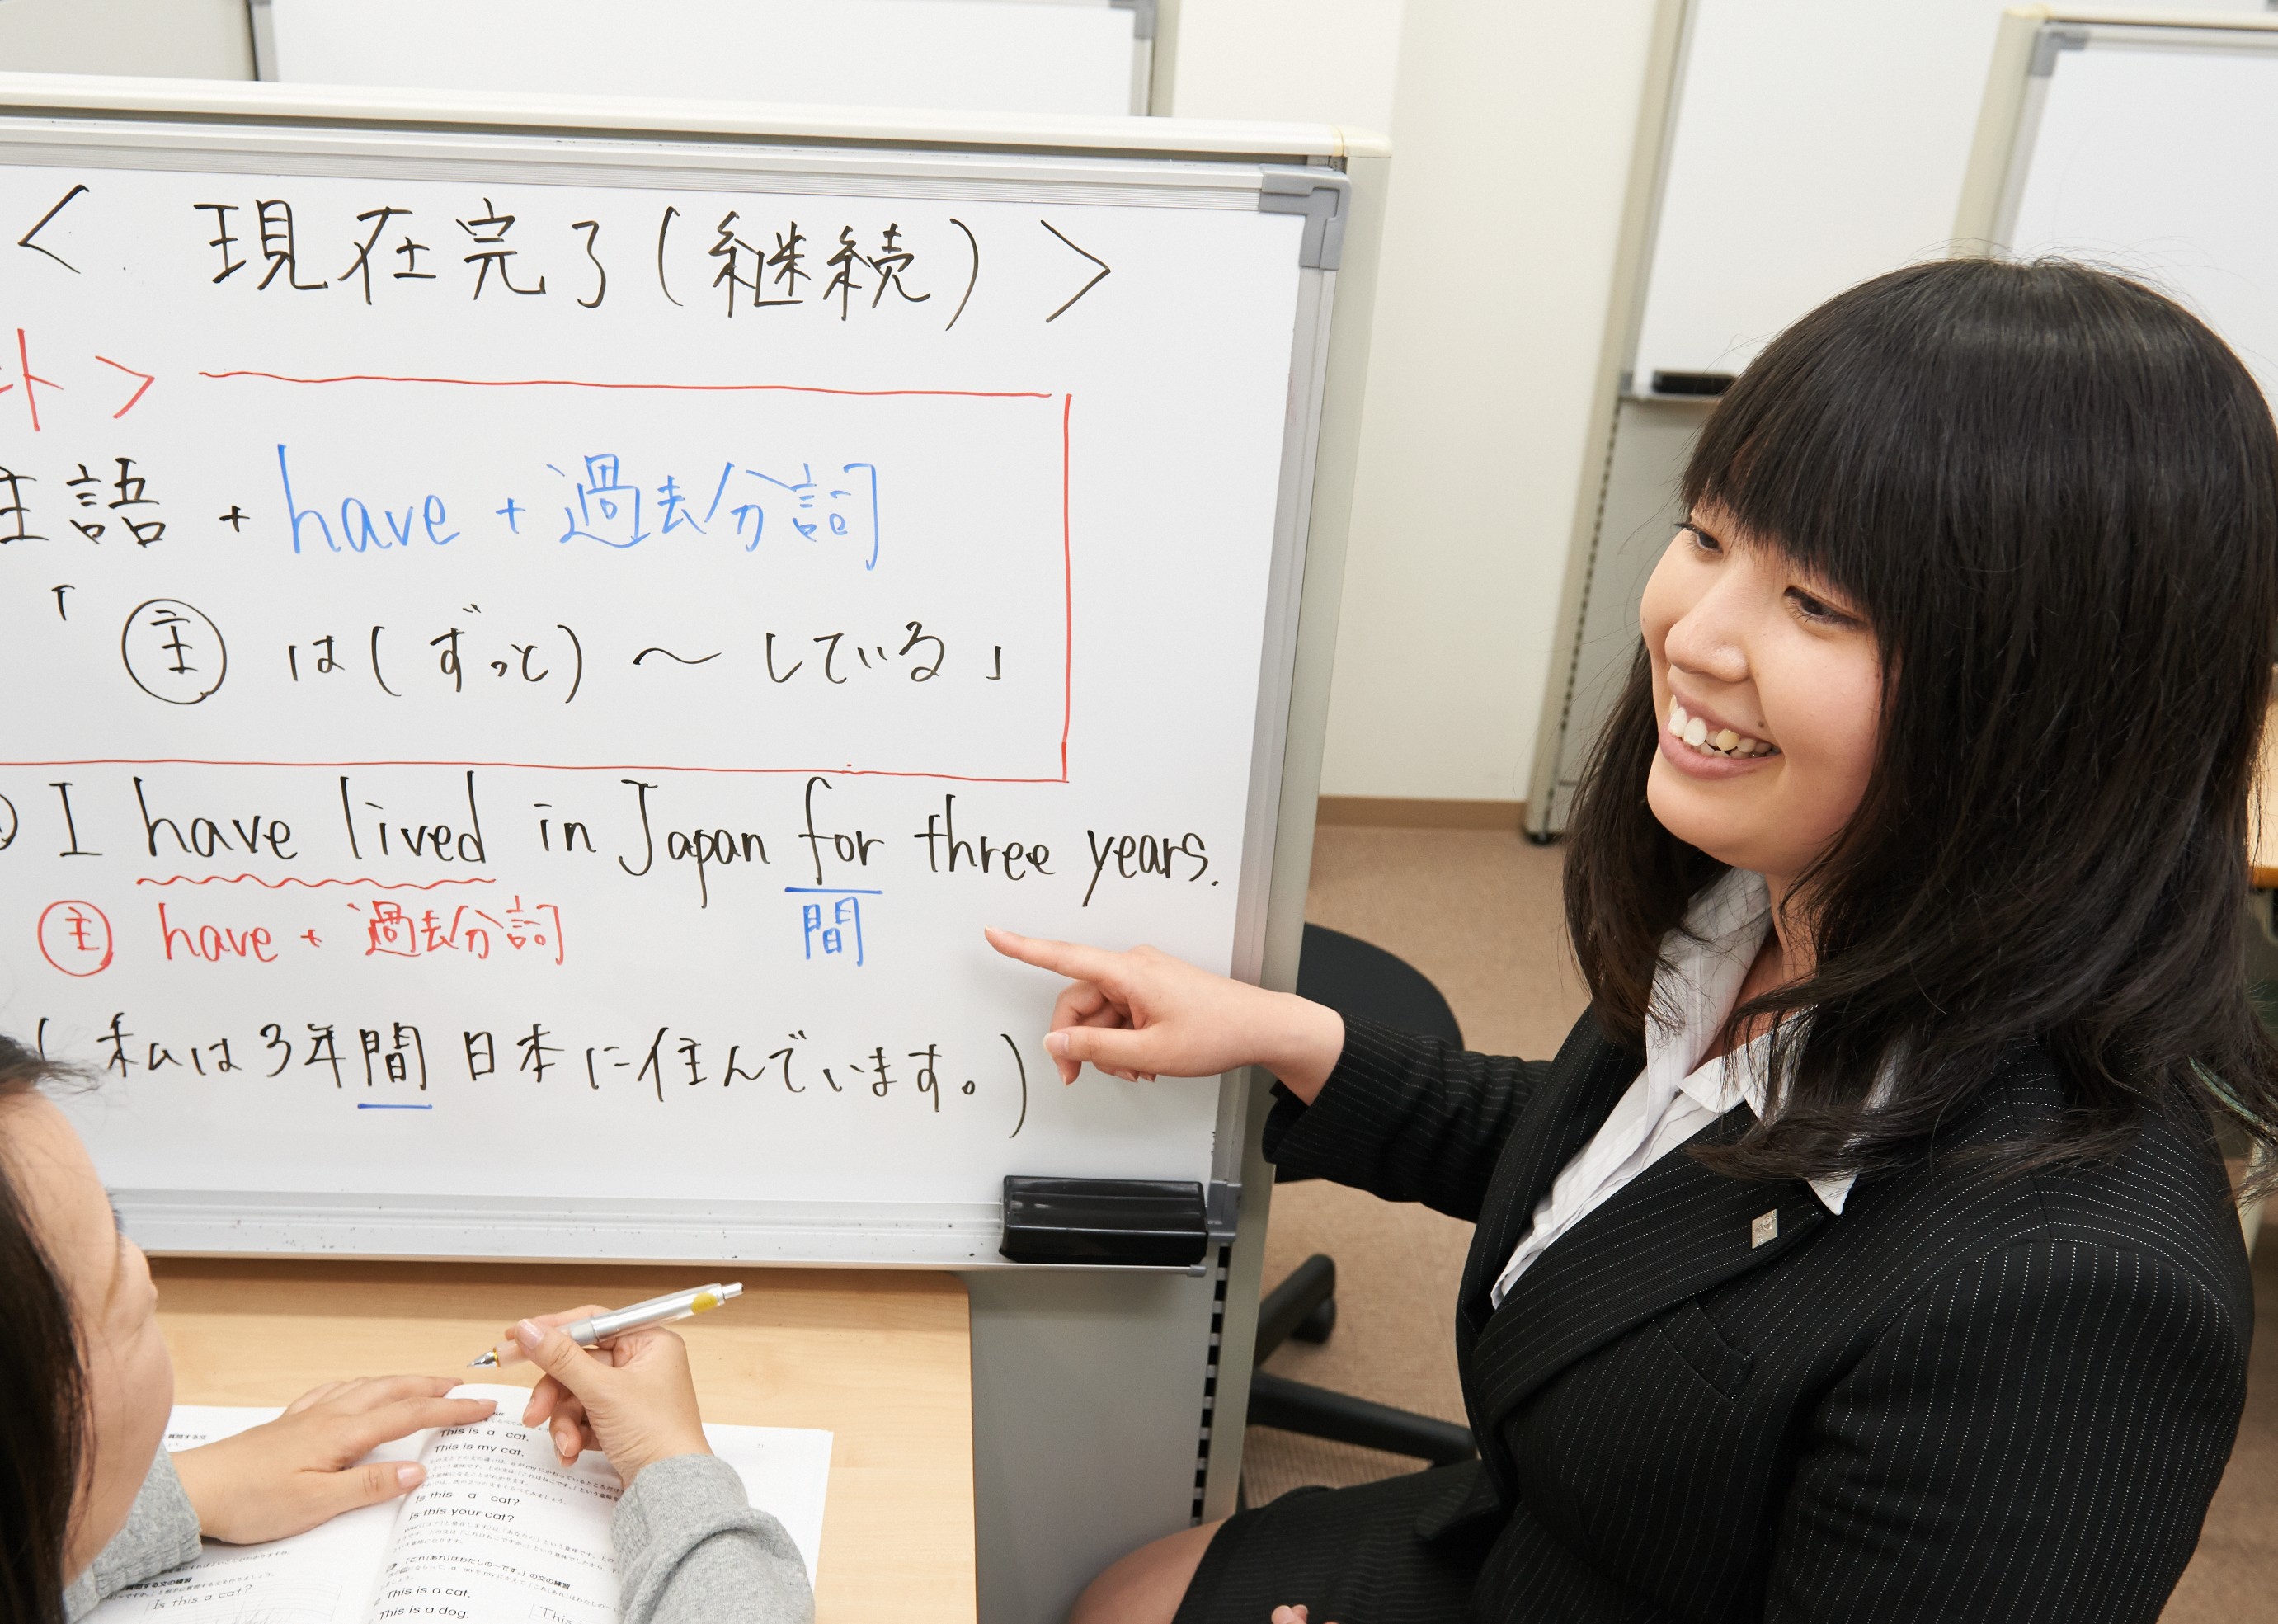 < 現在完了(継続) >
ト>
主語 + have + 過去分詞
「 主 は(ずっと) ～ している」
I have lived in Japan for three years.
主 have + 過去分詞 間
( 私は3年間 日本に住んでいます。)
This is a cat.
This is my cat.
Is this a cat?
Is this your cat?
「これ[あれ]はわたしの～です。」の文の練習
This is a cat.
This is a dog.
This
Is this a cat?